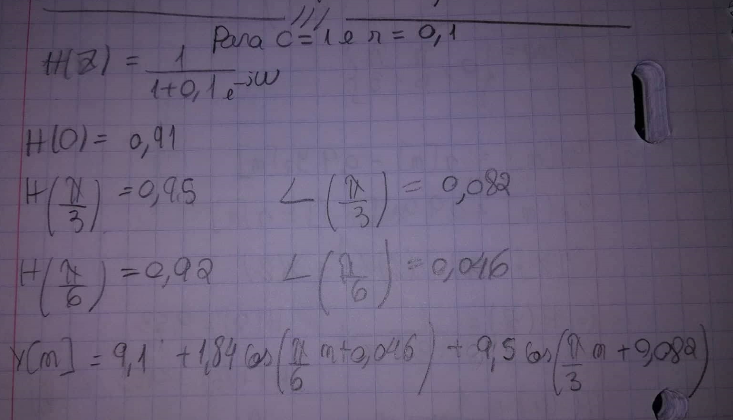 Para c=1 e r=0,1
H(Z) = 1/(1+0,1e^-jω)
H(0) = 0,91
H(π/3) = 0,95 ∠(π/3) = 0,082
H(π/6) = 0,92 ∠(π/6) = 0,046
Y[n] = 9,1 + 1,84 cos(π/6 n+0,046) + 9,5 cos(π/3 n + 0,082)